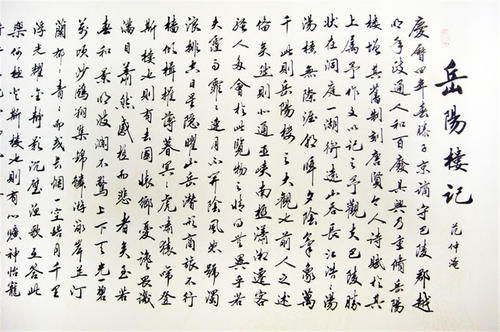 岳陽樓记
范仲淹
慶曆四年春滕子京謫守巴陵郡越
明年政通人和百廢具興乃重脩岳陽
樓增其舊制刻唐賢今人詩賦於其
上属予作文以记之予觀夫巴陵勝
状在洞庭一湖銜遠山吞長江浩浩湯
湯橫無際涯朝暉夕陰氣象萬
千此則岳陽樓之大觀也前人之述
備矣然則北通巫峡南極瀟湘遷客
騷人多會於此覽物之情得無異乎若
夫霪雨霏霏連月不開陰風怒號濁
浪排空日星隱曜山岳潛形商旅不行
檣傾楫摧薄暮冥冥虎嘯猿啼登
斯樓也則有去國懷鄉憂讒畏譏
滿目蕭然感極而悲者矣至若
春和景明波瀾不驚上下天光一碧
萬頃沙鷗翔集錦鱗游泳岸芷汀
蘭郁郁青青而或長烟一空皓月千里
浮光耀金靜影沉璧漁歌互答此
樂何極登斯樓也則有心曠神怡寵